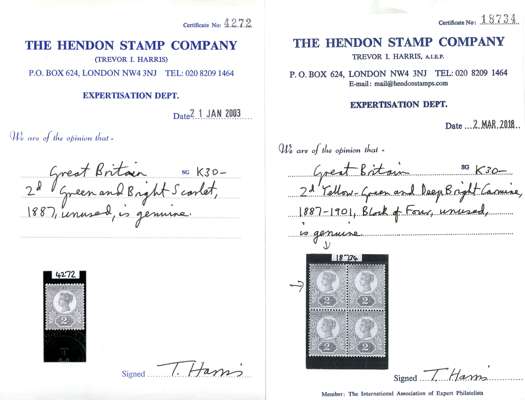 Certificate No: 4272
THE HENDON STAMP COMPANY
(TREVOR I. HARRIS)
P.O. BOX 624, LONDON NW4 3NJ TEL: 020 8209 1464
EXPERTISATION DEPT.
Date 21 JAN 2003
We are of the opinion that -
Great Britain SG K30-
2d Green and Bright Scarlet,
1887, unused, is genuine.
4272
2
Signed T. Harris
Certificate No: 18734
THE HENDON STAMP COMPANY
TREVOR I. HARRIS, A.I.E.P.
P.O. BOX 624, LONDON NW4 3NJ TEL: 020 8209 1464
E-mail: mail@hendonstamps.com
EXPERTISATION DEPT.
Date 2 MAR 2018
We are of the opinion that -
Great Britain SG K30-
2d Yellow-Green and Deep Bright Carmine,
1887-1901, Block of Four, unused,
is genuine.
18734
2 2
2 2
Signed T. Harris
Member: The International Association of Expert Philatelists